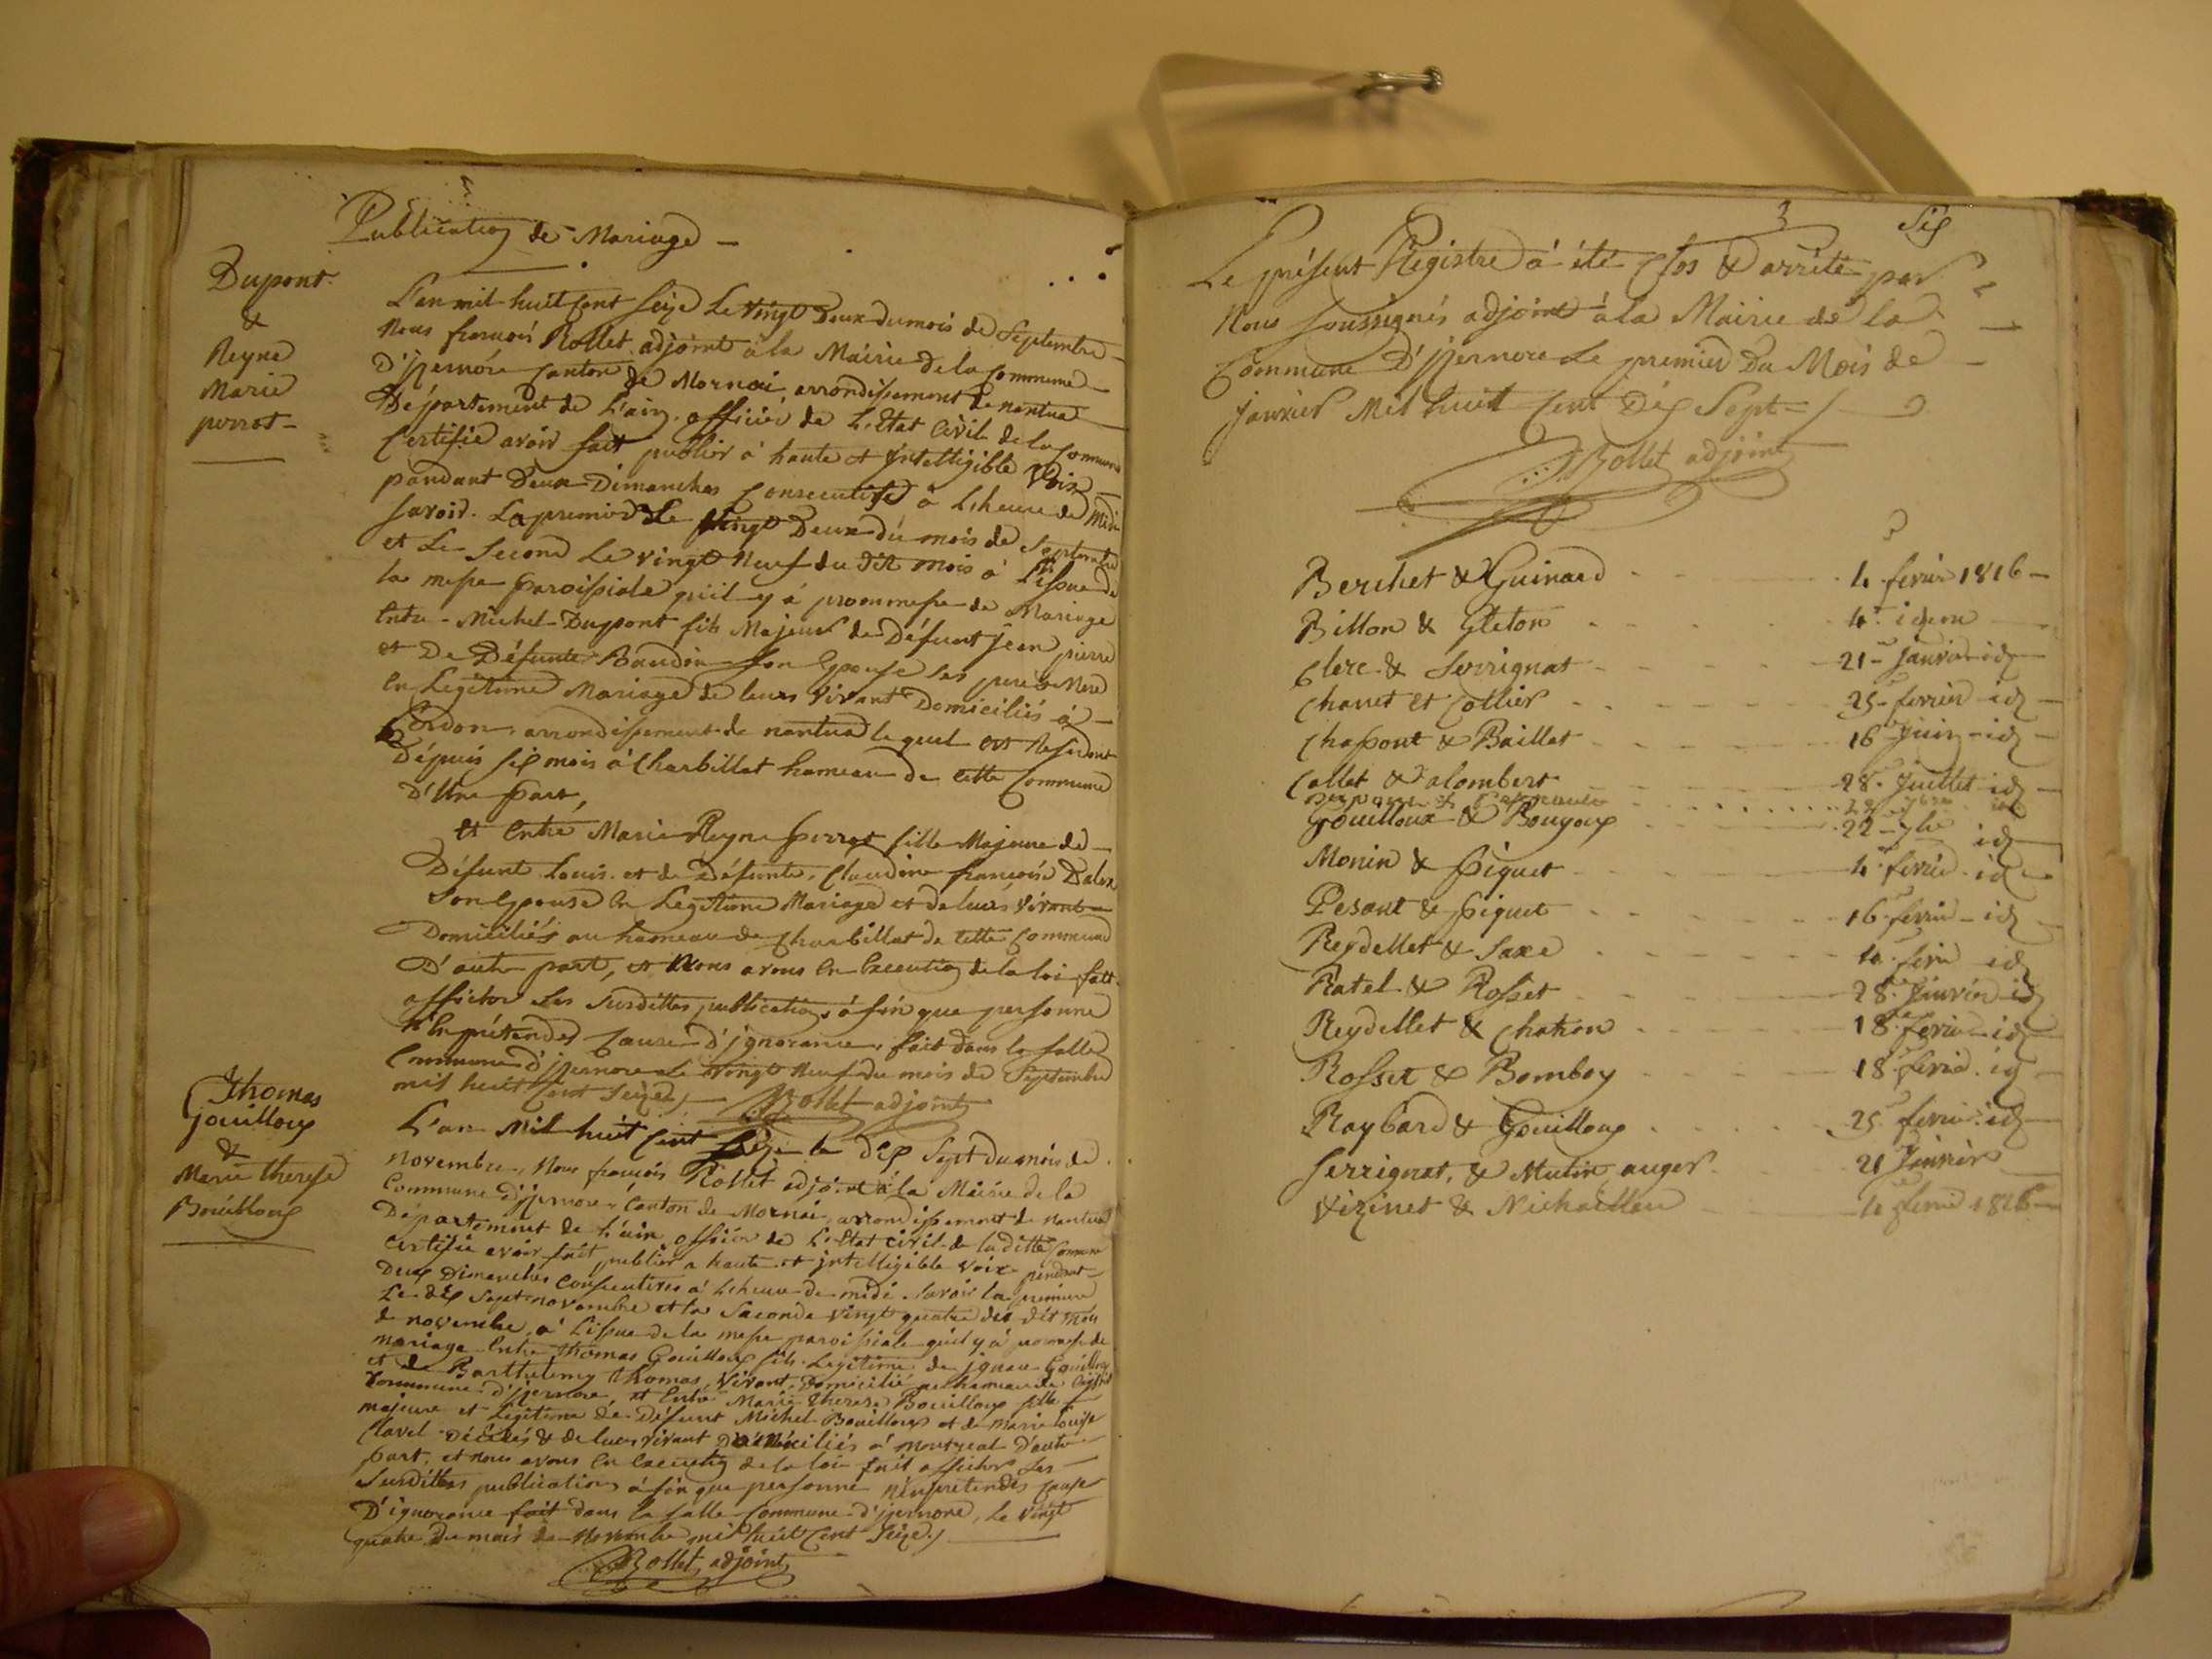 Publication de Mariage
Dupont
&
Reyne
Marie
perrot
L'an mil huit Cent seize Le vingt Deux du mois de Septembre
Nous françois Rollet adjoint à la Mairie de la Commune
D'jzernore Canton de Mornai, arrondissement de nantua
Département de L'ain, officier de L'Etat Civil de la Commune
Certifie avoir fait publier à haute et Intelligible Voix
pandant Deux Dimanches Consecutifs à L'heure de Midi
savoir. La premier Le vingt Deux du mois de Septembre
et Le Second Le vingt Neuf du Dit mois à L'issue de
la messe paroissiale qu'il y à prommesse de Mariage
Entre Michel Dupont fils Majeur de Défunt jean pierre
et De Défunte Baudin son Epouse ses pere & Mere
En Legitime Mariage de leurs vivant Domiciliés à
Cerdon, arrondissement de nantua le quel est Residant
Dépuis six mois à Charbillat hameau de cette Commune
D'Une part,
et Entre Marie Reyne perrot fille Majeure de
Défunt Louis et de Défunte Claudine françoise
Son Epouse En Legitime Mariage et de leurs vivant
Domiciliés au hameau de Charbillat de cette Commune
D'autre part, et Nous avons En Execution de la loi fait
afficher Les Susdittes publications à fin que personne
n'En prétendes Cause d'jgnorance, fait dans la salle
Commune d'jzernore Le vingt Neuf du mois de Septembre
mil huit Cent Seize Rollet adjoint
Thomas
Gouilloux
&
Marie Therese
Bouilloux
L'an Mil huit Cent Seize le dix Sept du mois de
novembre, Nous françois Rollet adjoint à la Mairie de la
Commune d'jzernore, Canton de Mornai, arrondissement de nantua
Département de L'ain officier de L'Etat civil de la ditte Commune
Certifie avoir fait publier a haute et jntelligible voix pendant
Deux Dimanches Consecutives à L'heure de midi. Savoir la premiere
Le dix Sept novembre et la Seconde vingt quatre du dit mois
de novembre, à L'issue de la messe paroissiale qu'il y à promesse de
mariage Entre Thomas Gouilloux fils Legitime de jgnace Gouilloux
et de Barthelemy Thomas, vivant, Domicilié au hameau de
Commune d'jzernore, et Entre Marie Therese Bouilloux fille
majeure et Legitime de Défunt Michel Bouilloux et de Marie Louise
Clavel Décédés & de leurs vivant Domiciliés à Montreal D'autre
part, et nous avons En Execution de la loi fait afficher Les
Susdittes publications à fin que personne n'En pretendes Cause
D'ignorance fait dans la salle Commune d'jzernore, Le vingt
quatre du mois de Novembre mil huit Cent Seize
Rollet adjoint
3 Six
Le présent Régistre à été Clos & arrété par
Nous soussignés adjoint à la Mairie de la
Commune D'jzernore Le premier Du Mois de
janvier Mil huit Cent Dix Sept
Rollet adjoint
Berchet & Guinard 4 fevrier 1816
Billon & Gleton 4 idem
Clerc & Serrignat 21 Janvier id
Chanet et Collier 25 fevrier id
Chapont & Baillat 16 Juin id
Collet & alombert 28 Juillet id
Gouilloux & Bouyoux 22 7bre id
Monin & Piquet 4 fevrier id
Pesant & Piquet 16 fevrier id
Reydellet & Saxe 10 fevrier id
Ratel & Rosset 28 Janvier id
Reydellet & Chatron 18 fevrier id
Rosset & Bomboy 18 fevrier id
Raybard & Gouilloux 25 fevrier id
Serrignat, & Mutin auger 21 Janvier
Vizinet & Michaillon 4 fevrier 1816